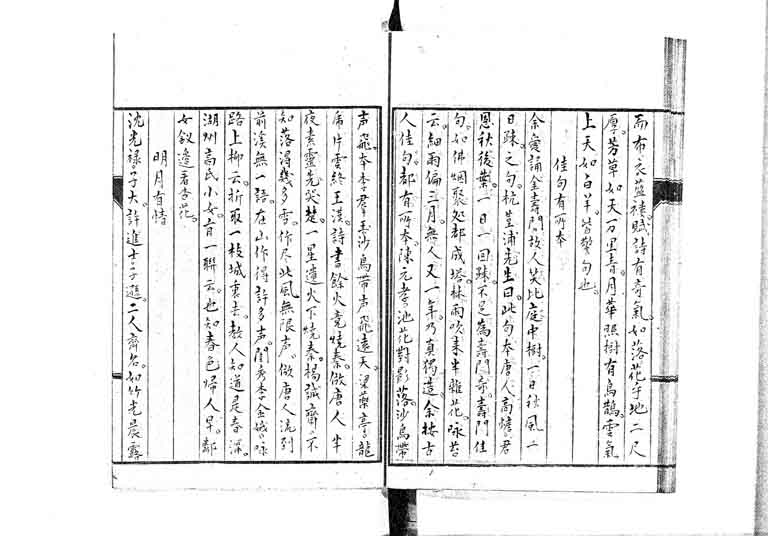 而布衣藍褸賦詩有奇氣如落花于地二尺
厚芳草如天万里青月華照樹有烏鵲雲氣
上天如白羊皆警句也
佳句有所本
余愛誦金壽門故人笑比庭中樹一日秋風一
日疎之句杭堇浦先生曰此句本唐人高蟾君
恩秋後葉一日一回疎不足為壽門奇壽門佳
句如佛烟聚処都成塔林雨吹来半雜花咏苔
云細雨偏三月無人又一年乃真獨造余按古
人佳句都有所本陳元孝池花對影落沙鳥帶
声飛本李羣玉沙鳥帶声飛遠天梁藥亭龍
虎片雲終王漢詩書餘火竟燒秦倣唐人半
夜素靈先哭楚一星遺火下燒秦楊誠齋不
知落得幾多雪作尽此風無限声倣唐人流到
前溪無一語在山作得許多声閨秀李金娥咏
路上柳云折取一枝城裏去教人知道是春深
湖州高氏小女有一聯云也知春色帰人早鄰
女釵邊看李花
明月有情
沈光禄子大許進士子遜二人齊名如竹光晨露